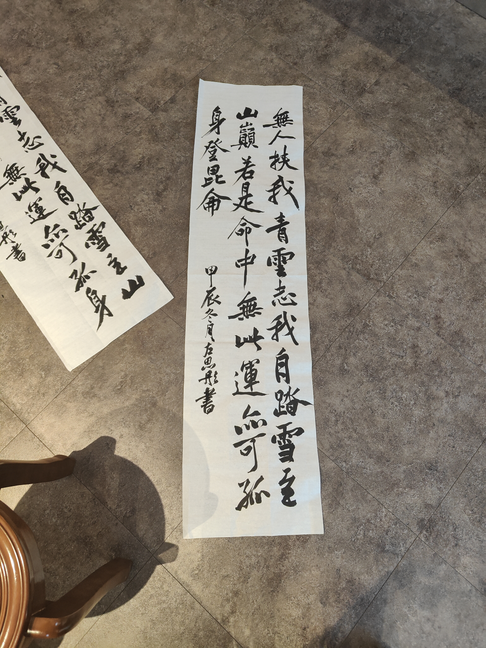 無人扶我青雲志我自踏雪至
山巔若是命中無此運亦可孤
身登昆侖
甲辰冬月左思彤書
雲志我自踏雪至山
無此運亦可孤身
彤書